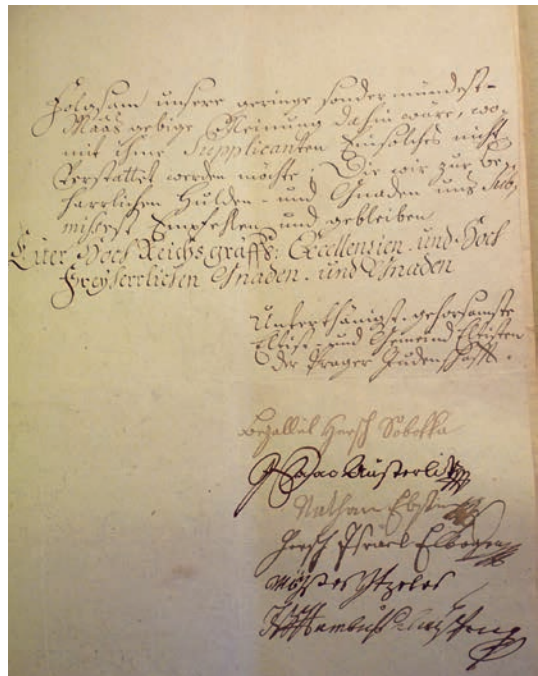 Folgsam unsere geringe sonder mündest-
Maas gebige Meinung dahin wäre, wo-
mit ihme Supplicanten Einsolches nicht
Verstattet werden möchte. Die wir zur be-
harrlichen Hulden- und Gnaden uns Sub-
misest Empfehlen und gebleiben
Euer Hoch Reichsgräffl: Excellenzien und Hoch
Freyherrlichen Gnaden und Gnaden
Unterthänigst-gehorsamste
Eltist- und Gemeind Eltisten
der Prager Judenschafft.
Bezallel Hersch Sobotka
Isaac Austerlitz
Nathan
Hersch Israel Elbogen
Moyses